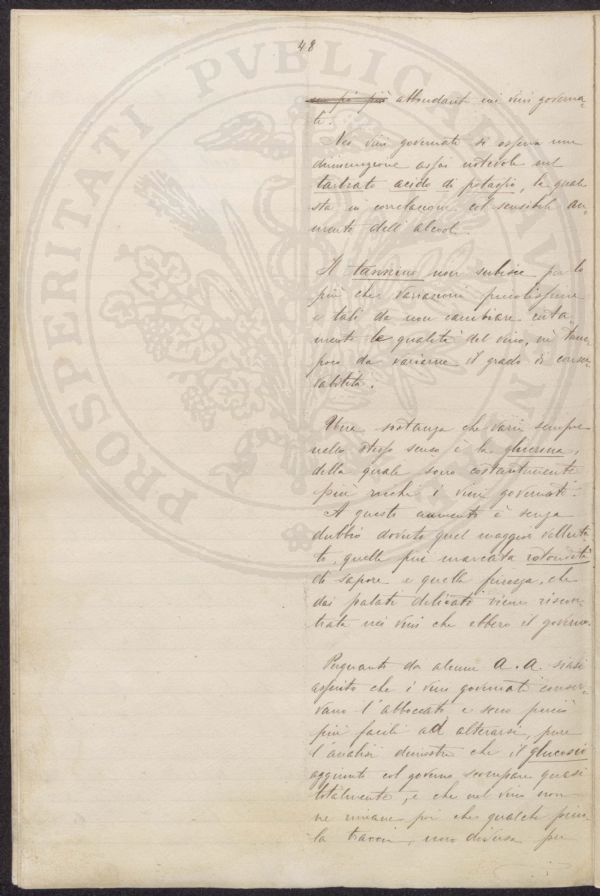 48
abbondanti nei vini governa-
ti.
Nei vini governati si osserva una
diminuzione assai notevole nel
tartrato acido di potassio, la quale
sta in correlazione col sensibile au-
mento dell'alcool.
Il tannino non subisce per lo
più che variazioni piccolissime
e tali da non cambiare
la qualità del vino, nè tam-
poco da variarne il grado di conser-
vabilità.
Una sostanza che varia sempre
nello stesso senso è la glicerina,
della quale sono costantemente
più ricchi i vini governati.
A questo aumento è senza
dubbio dovuto quel maggior velluta-
to, quella più marcata rotondità
di sapore e quella finezza, che
dai palati delicati viene riscon-
trata nei vini che ebbero il governo.
Per quanto da alcuni A. A. siasi
asserito che i vini governati conser-
vano l'abboccato e sono perciò
più facili ad alterarsi, pure
l'analisi dimostra che il glucosio
aggiunto col governo scompare quasi
totalmente, e che nel vino non
ne rimane poi che qualche picco-
la traccia, non diversa per
PROSPERITATI PVBLICAE